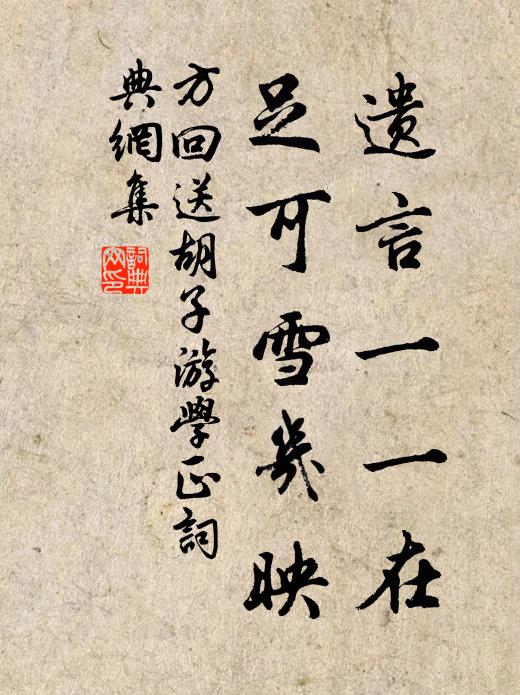 遗言一一在
足可雪几映
方回送胡子游學正詞
典網集
詞典